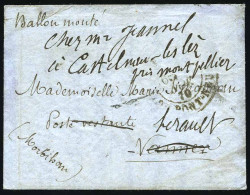 Ballon monté
chez mr Jeannel
à Castelnau-les lez
près montpellier
Mademoiselle Marie
Poste restante herault
Vannes
Morbihan